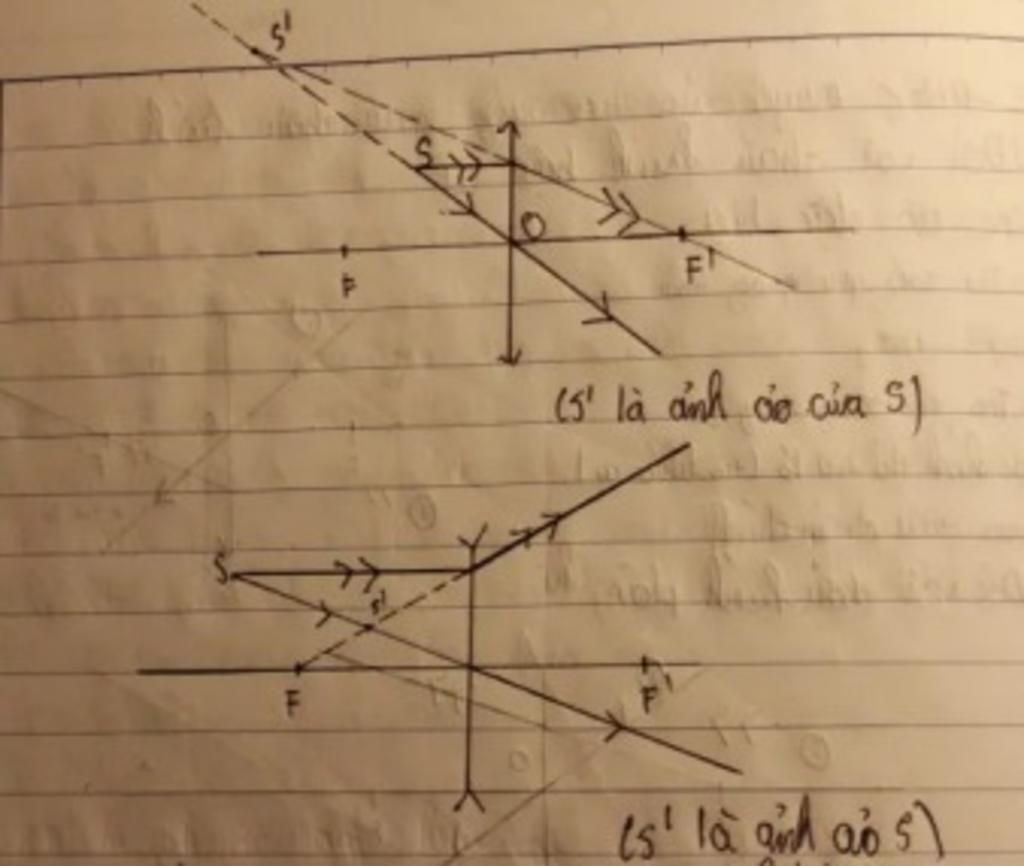 S'
S
O
F
F'
(S' là ảnh ảo của S)
S
S'
F
F'
(S' là ảnh ảo S)